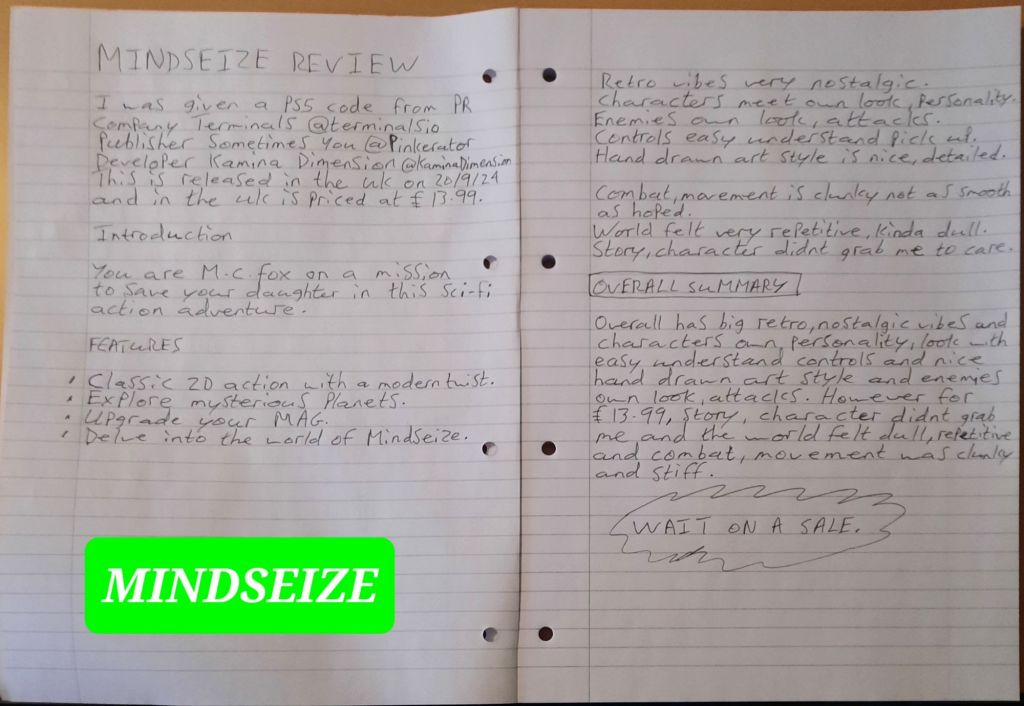 MINDSEIZE REVIEW
I was given a PS5 code from PR
Company Terminals @terminalsio
Publisher Sometimes You @Pinkerator
Developer Kamina Dimension @KaminaDimension
This is released in the uk on 20/9/24
and in the uk is priced at £13.99.
Introduction
You are M.C. fox on a mission
to save your daughter in this sci-fi
action adventure.
FEATURES
• Classic 2D action with a modern twist.
• Explore mysterious Planets.
• Upgrade your MAG.
• Delve into the world of MindSeize.
MINDSEIZE
Retro vibes very nostalgic.
Characters meet own look, personality.
Enemies own look, attacks.
Controls easy understand pick up.
Hand drawn art style is nice, detailed.
Combat, movement is clunky not as smooth
as hoped.
World felt very repetitive, kinda dull.
Story, character didnt grab me to care.
OVERALL SUMMARY
Overall has big retro, nostalgic vibes and
characters own personality, look with
easy understand controls and nice
hand drawn art style and enemies
own look, attacks. However for
£13.99, story, character didnt grab
me and the world felt dull, repetitive
and combat, movement was clunky
and stiff.
WAIT ON A SALE.